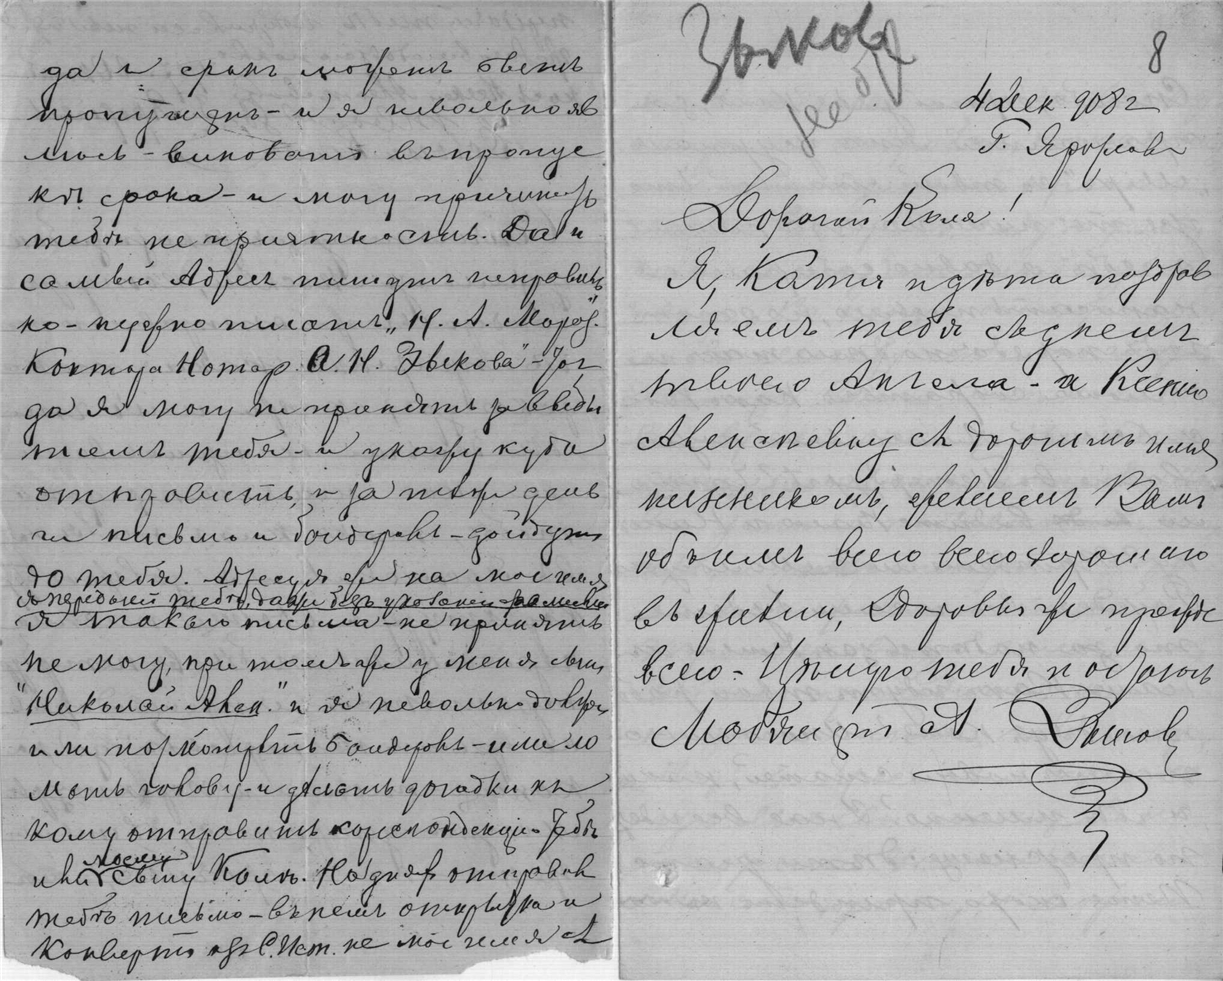 да и срокъ можетъ быть
пропущенъ - и я невольно яв
люсь - виноватъ въ пропус
кѣ срока - и могу причинить
тебѣ не приятность. Да и
самый Адресъ пишутъ неправиль
но - нужно писать „Н. А. Мороз.
Контора Нотар. А. Н. Зыкова" - Тог
да я могу не принять за
тебя - и укажу куда
отправить, и за тотже день
и письмо и бандероль - дойдутъ
до тебя. Адресуя же на мое имя
съ передачей тебѣ, даже безъ
я такого письма - не принять
не могу, при томъ же у меня сынъ
"Николай Алек." и я невольно
или посмотрѣть бандероль - или ло
мать голову - и дѣлать догадки къ
кому отправить корреспонденцію Тебѣ
или моему сыну Колѣ. На дняхъ отправилъ
тебѣ письмо - въ немъ открытка и
Конвертъ не мое имя съ
Зыковъ
8
4 Дек. 908 г
Г. Ярославль
Дорогой Коля!
Я, Катя и дѣти поздрав
ляемъ тебя съ днемъ
твоего Ангела - а Ксенію
съ дорогимъ имя
нинникомъ, желаемъ Вамъ
обоимъ всего всего хорошаго
въ жизни, Здоровья же прежде
всего - Цѣлую тебя и остаюсь
Любящій А. Зыковъ